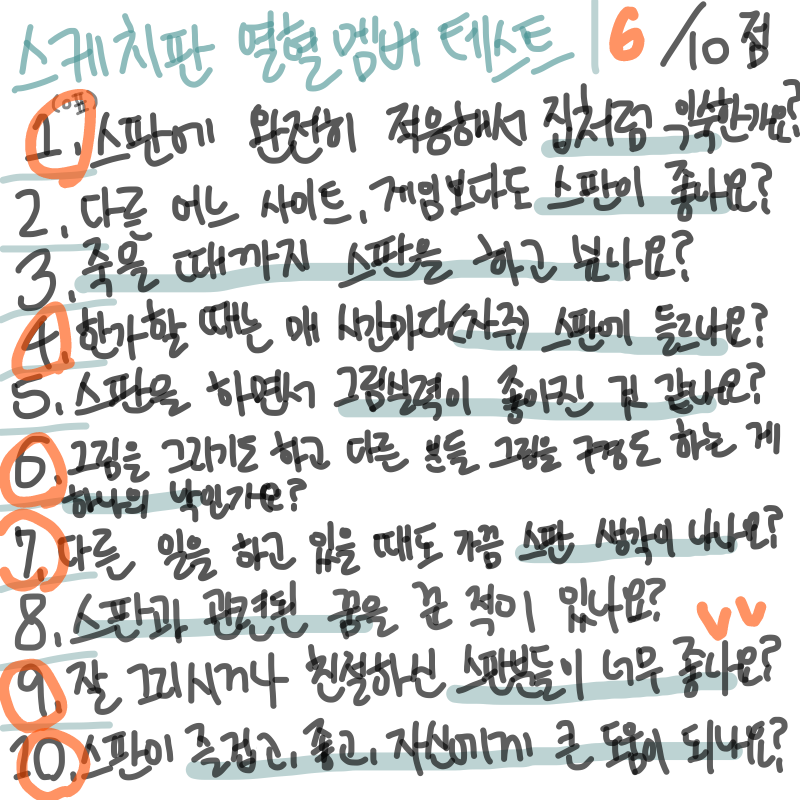 스케치판 열혈멤버 테스트 6 /10점
1. (옙) 스판에 완전히 적응해서 집처럼 익숙한가요?
2. 다른 어느 사이트, 게임보다도 스판이 좋나요?
3. 죽을 때까지 스판을 하고 싶나요?
4. 한가할 때는 매 시간마다(자주) 스판에 들르나요?
5. 스판을 하면서 그림실력이 좋아진 것 같나요?
6. 그림을 그리기도 하고 다른 분들 그림을 구경도 하는 게
하나의 낙인가요?
7. 다른 일을 하고 있을 때도 가끔 스판 생각이 나나요?
8. 스판과 관련된 꿈을 꾼 적이 있나요?
9. 잘 그리시거나 친절하신 스판분들이 너무 좋나요?
10. 스판이 즐겁고, 좋고, 자신에게 큰 도움이 되나요?